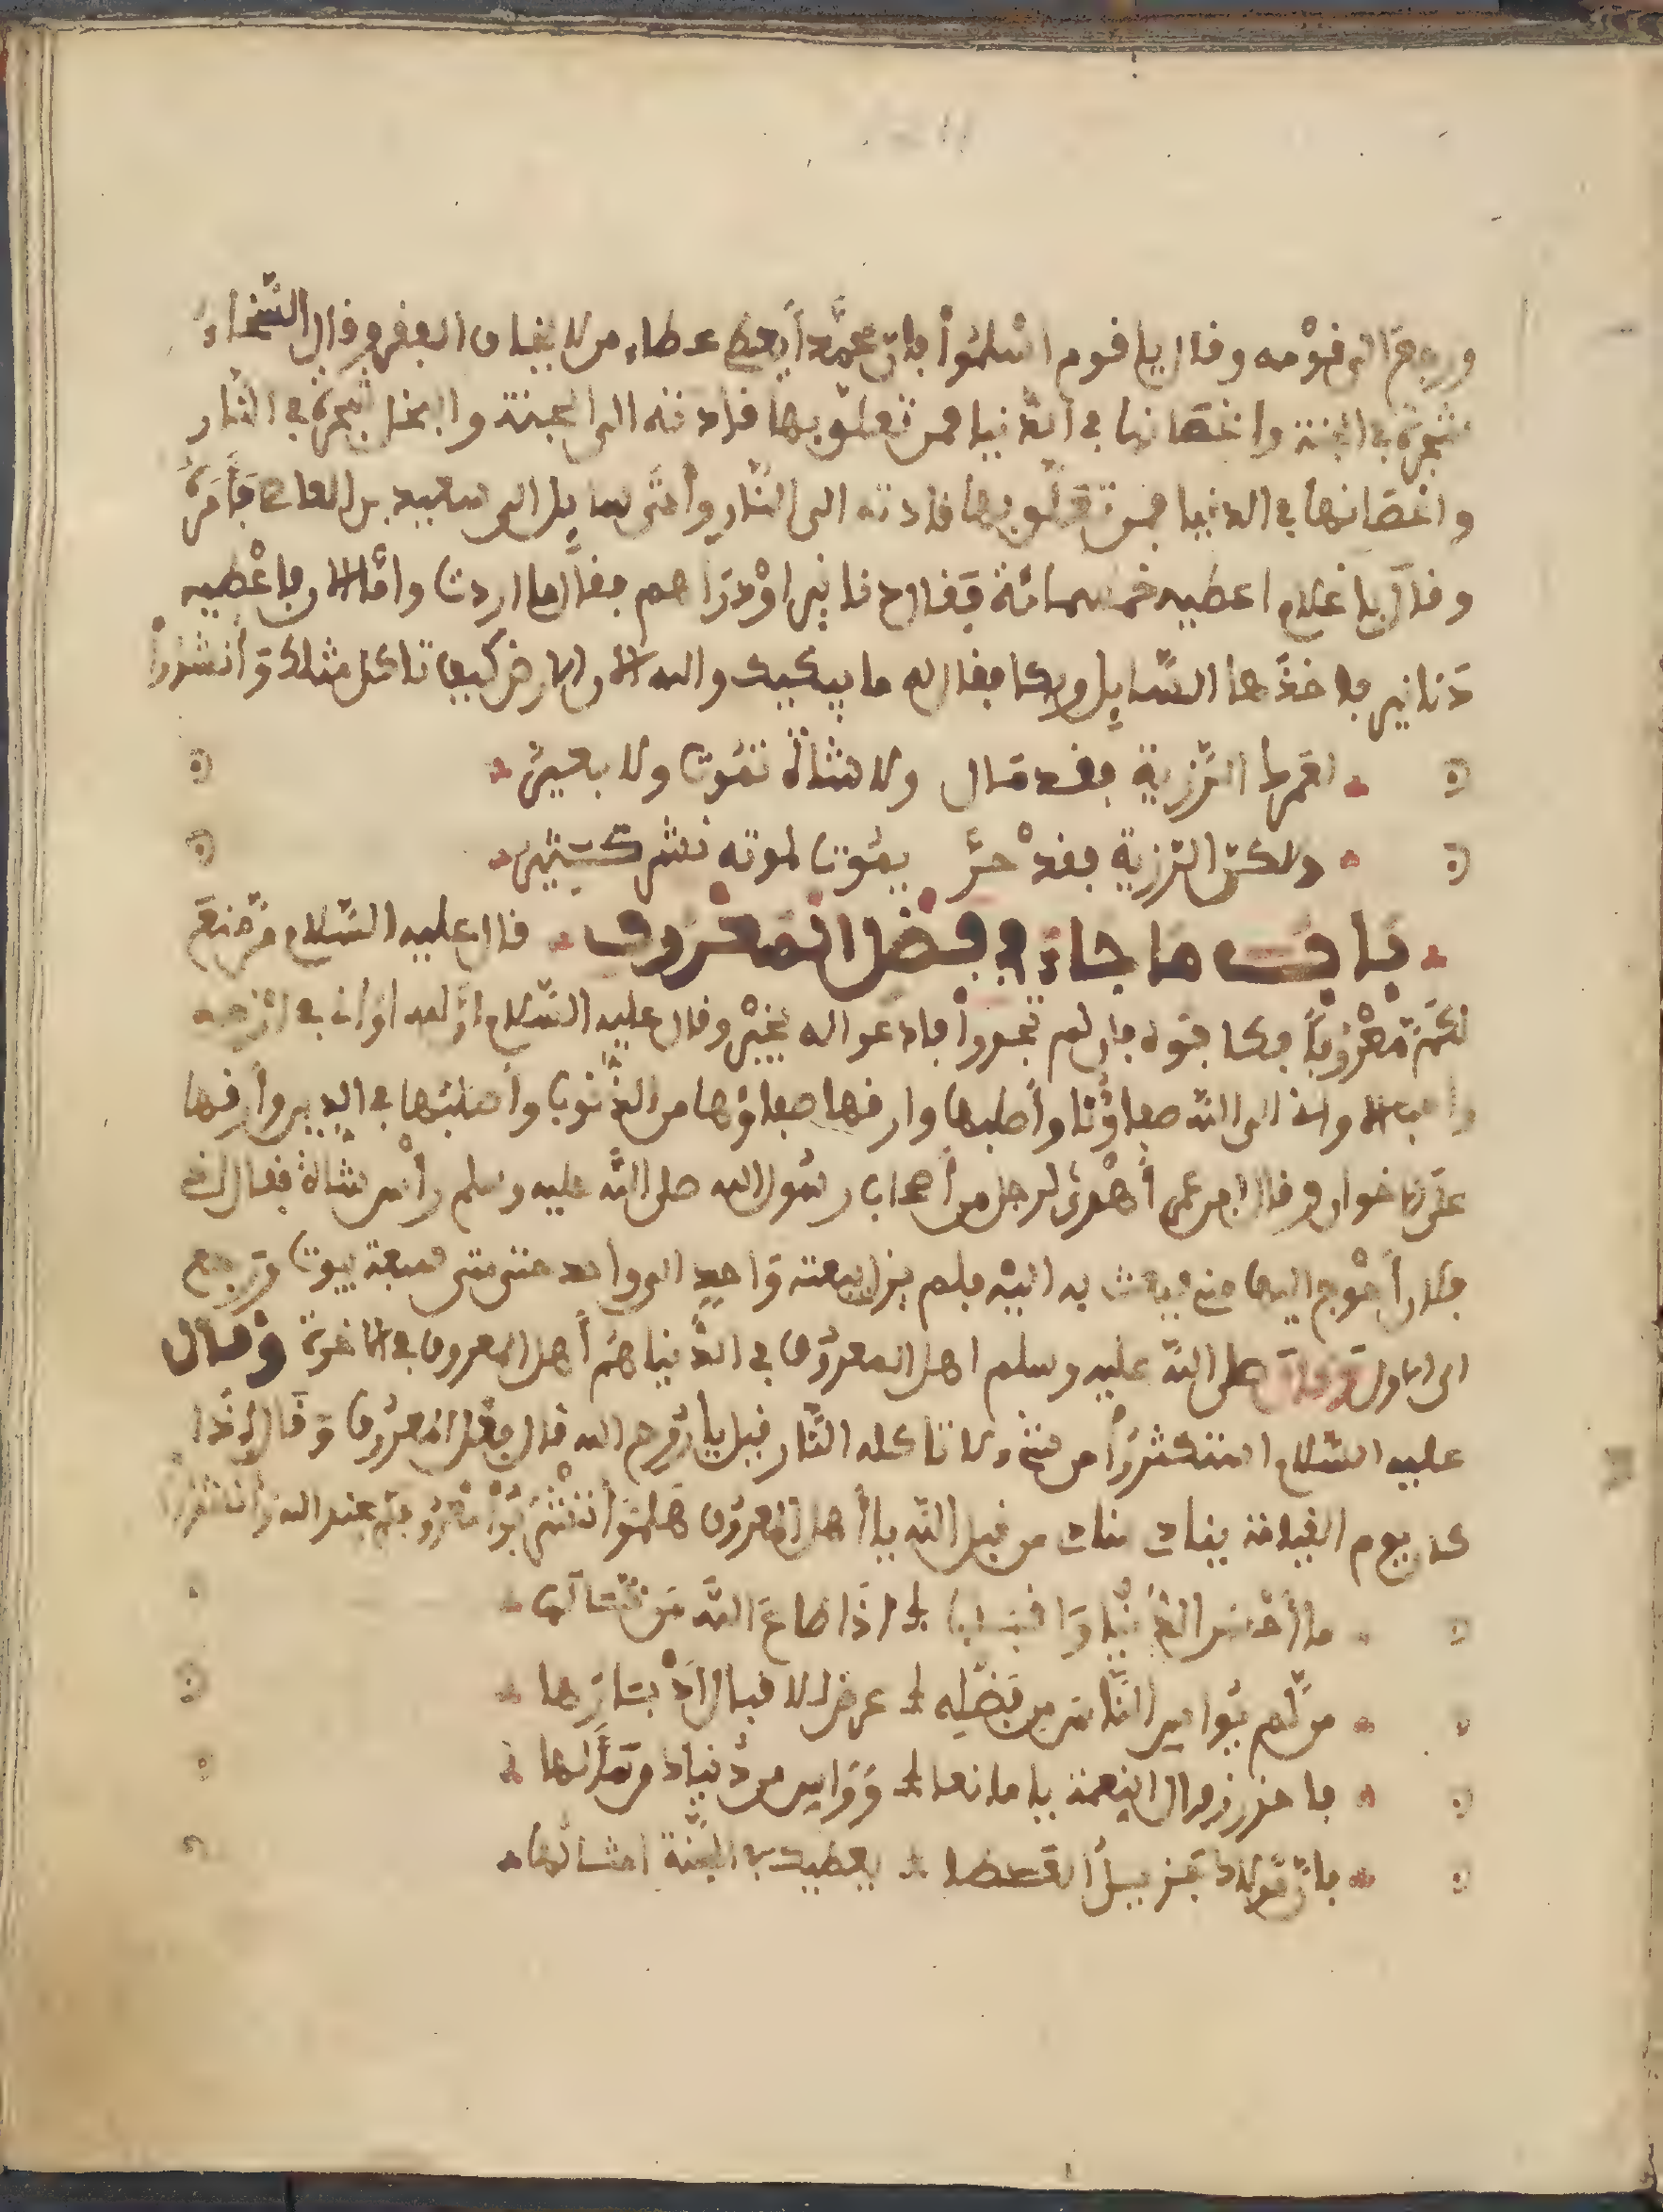 ورجع الى قومه وقال يا قوم اسلموا فان محمدا يعطي عطاء من لا يخاف الفقر وقال السخاء
شجرة في الجنة واغصانها في الدنيا فمن تعلق بها قادته الى الجنة والبخل شجرة في النار
واغصانها في الدنيا فمن تعلق بها قادته الى النار وأتى سايل الى سعيد بن العاص فأمره
وقال يا غلام اعطيه خمسمائة فقال دنانير او دراهم فقال ما اردت واما الان فاعطيه
دنانير فاخذها السايل وبكا فقال له ما يبكيك والله الارض كيف تاكل مثلك وأنشدوا
لعمرك ما الرزية فقد مال ولا شاة تموت ولا بعير
ولكن الرزية فقد حر يموت لموته بشر كثير
باب ما جاء في فضل المعروف قال عليه السلام من صنع
لكم معروفا فكافوه فان لم تجدوا فادعوا له بخير وقال عليه السلام ان لله اواني في ارضه
واحب الاواني الى الله صفاؤنا وأصلبها وارقها صفاؤها من الذنوب وأصلبها في الدين وأرقها
على الاخوان وقال ابن عمر أهدى لرجل من أصحاب رسول الله صلى الله عليه وسلم رأس شاة فقال ان
فلان أحوج اليه مني فبعث به اليه فلم يزل يبعثه واحد الى واحد حتى متى سبعة بيوت ورجع
الى الاول وقال صلى الله عليه وسلم اهل المعروف في الدنيا هم أهل المعروف في الاخرة وقال
عليه السلام استكثروا من شيء لا تاكله النار قيل يا رسول الله قال فعل المعروف وقال اذا
كان يوم القيامة ينادي مناد من قبل الله يا أهل المعروف هلموا معروفكم عند الله وأنشدوا
ما أحسن الدنيا واقبالها اذا طاع الله من نالها
من لم يواسي الناس من فضله عرض للاقبال ادبارها
فاحذر زوال النعمة يا مانعا وواس من دنياك من سألها
فان مولاك جزيل العطا يعطيك بالجنة امثالها